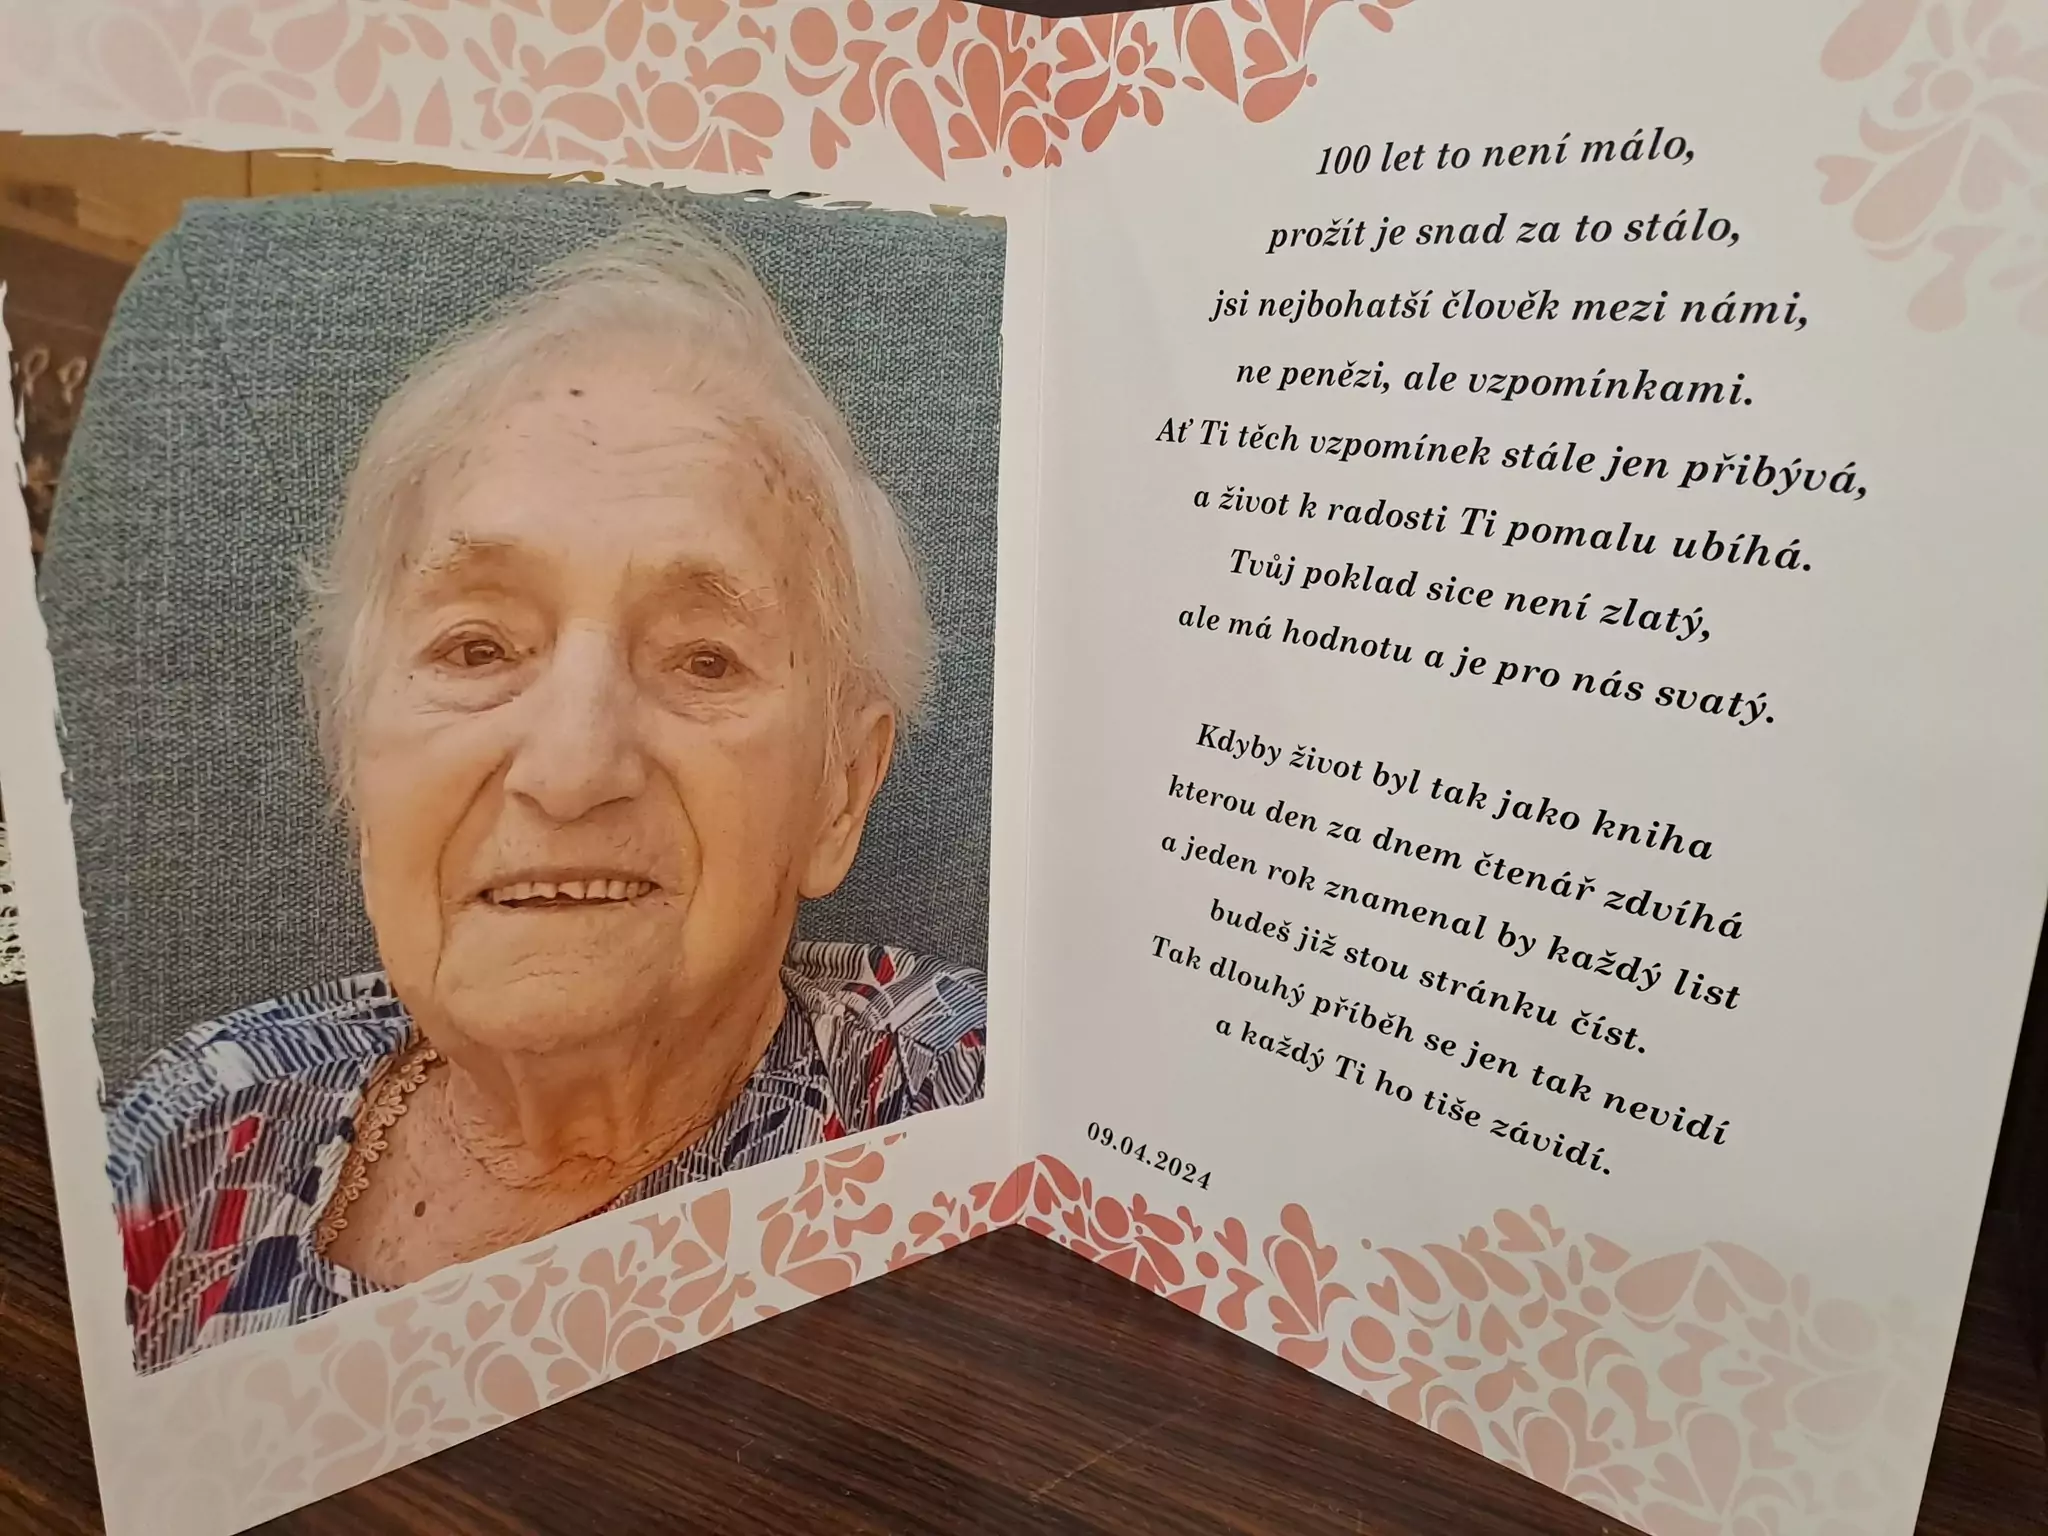 100 let to není málo,
prožít je snad za to stálo,
jsi nejbohatší člověk mezi námi,
ne penězi, ale vzpomínkami.
Ať Ti těch vzpomínek stále jen přibývá,
a život k radosti Ti pomalu ubíhá.
Tvůj poklad sice není zlatý,
ale má hodnotu a je pro nás svatý.
Kdyby život byl tak jako kniha
kterou den za dnem čtenář zdvíhá
a jeden rok znamenal by každý list
budeš již stou stránku číst.
Tak dlouhý příběh se jen tak nevidí
a každý Ti ho tiše závidí.
09.04.2024